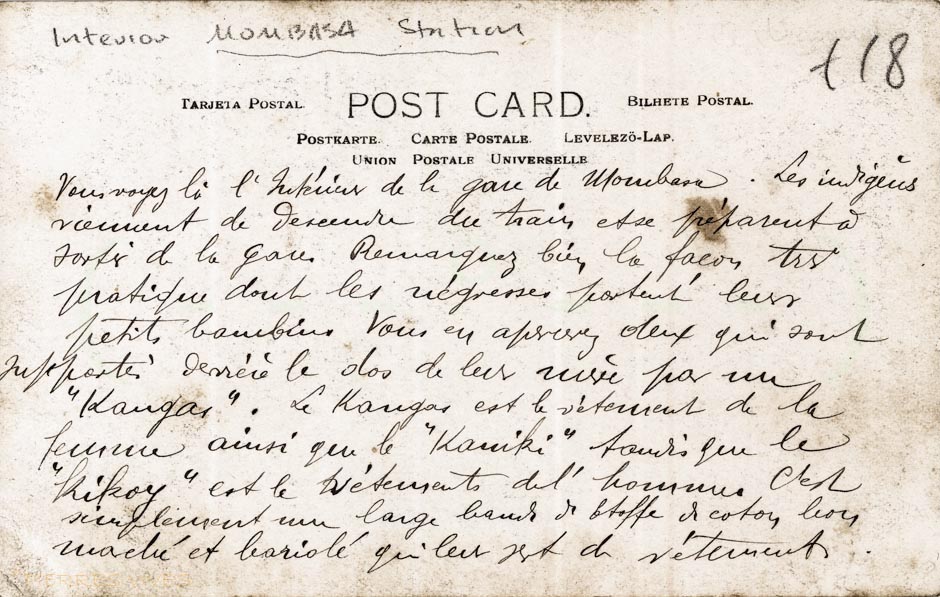 Interior MOMBASA Station
+18
TARJETA POSTAL. POST CARD. BILHETE POSTAL.
POSTKARTE. CARTE POSTALE. LEVELEZÖ-LAP.
UNION POSTALE UNIVERSELLE
Vous voyez là l'Intérieur de la gare de Mombasa. Les indigèns
viennent de descendre du train et se préparent à
sortir de la gare. Remarquez bien la façon très
pratique dont les négresses portent leurs
petits bambins Vous en apercevez deux qui sont
supportés derrière le dos de leur mère par un
"Kangas". Le Kangas est le vêtement de la
femme ainsi que le "Kaniki" tandis que le
"Kikoy" est le vêtements de l'homme. C'est
simplement une large bande d'étoffe de coton bon
marché et bariolé qui leur sert de vêtement.